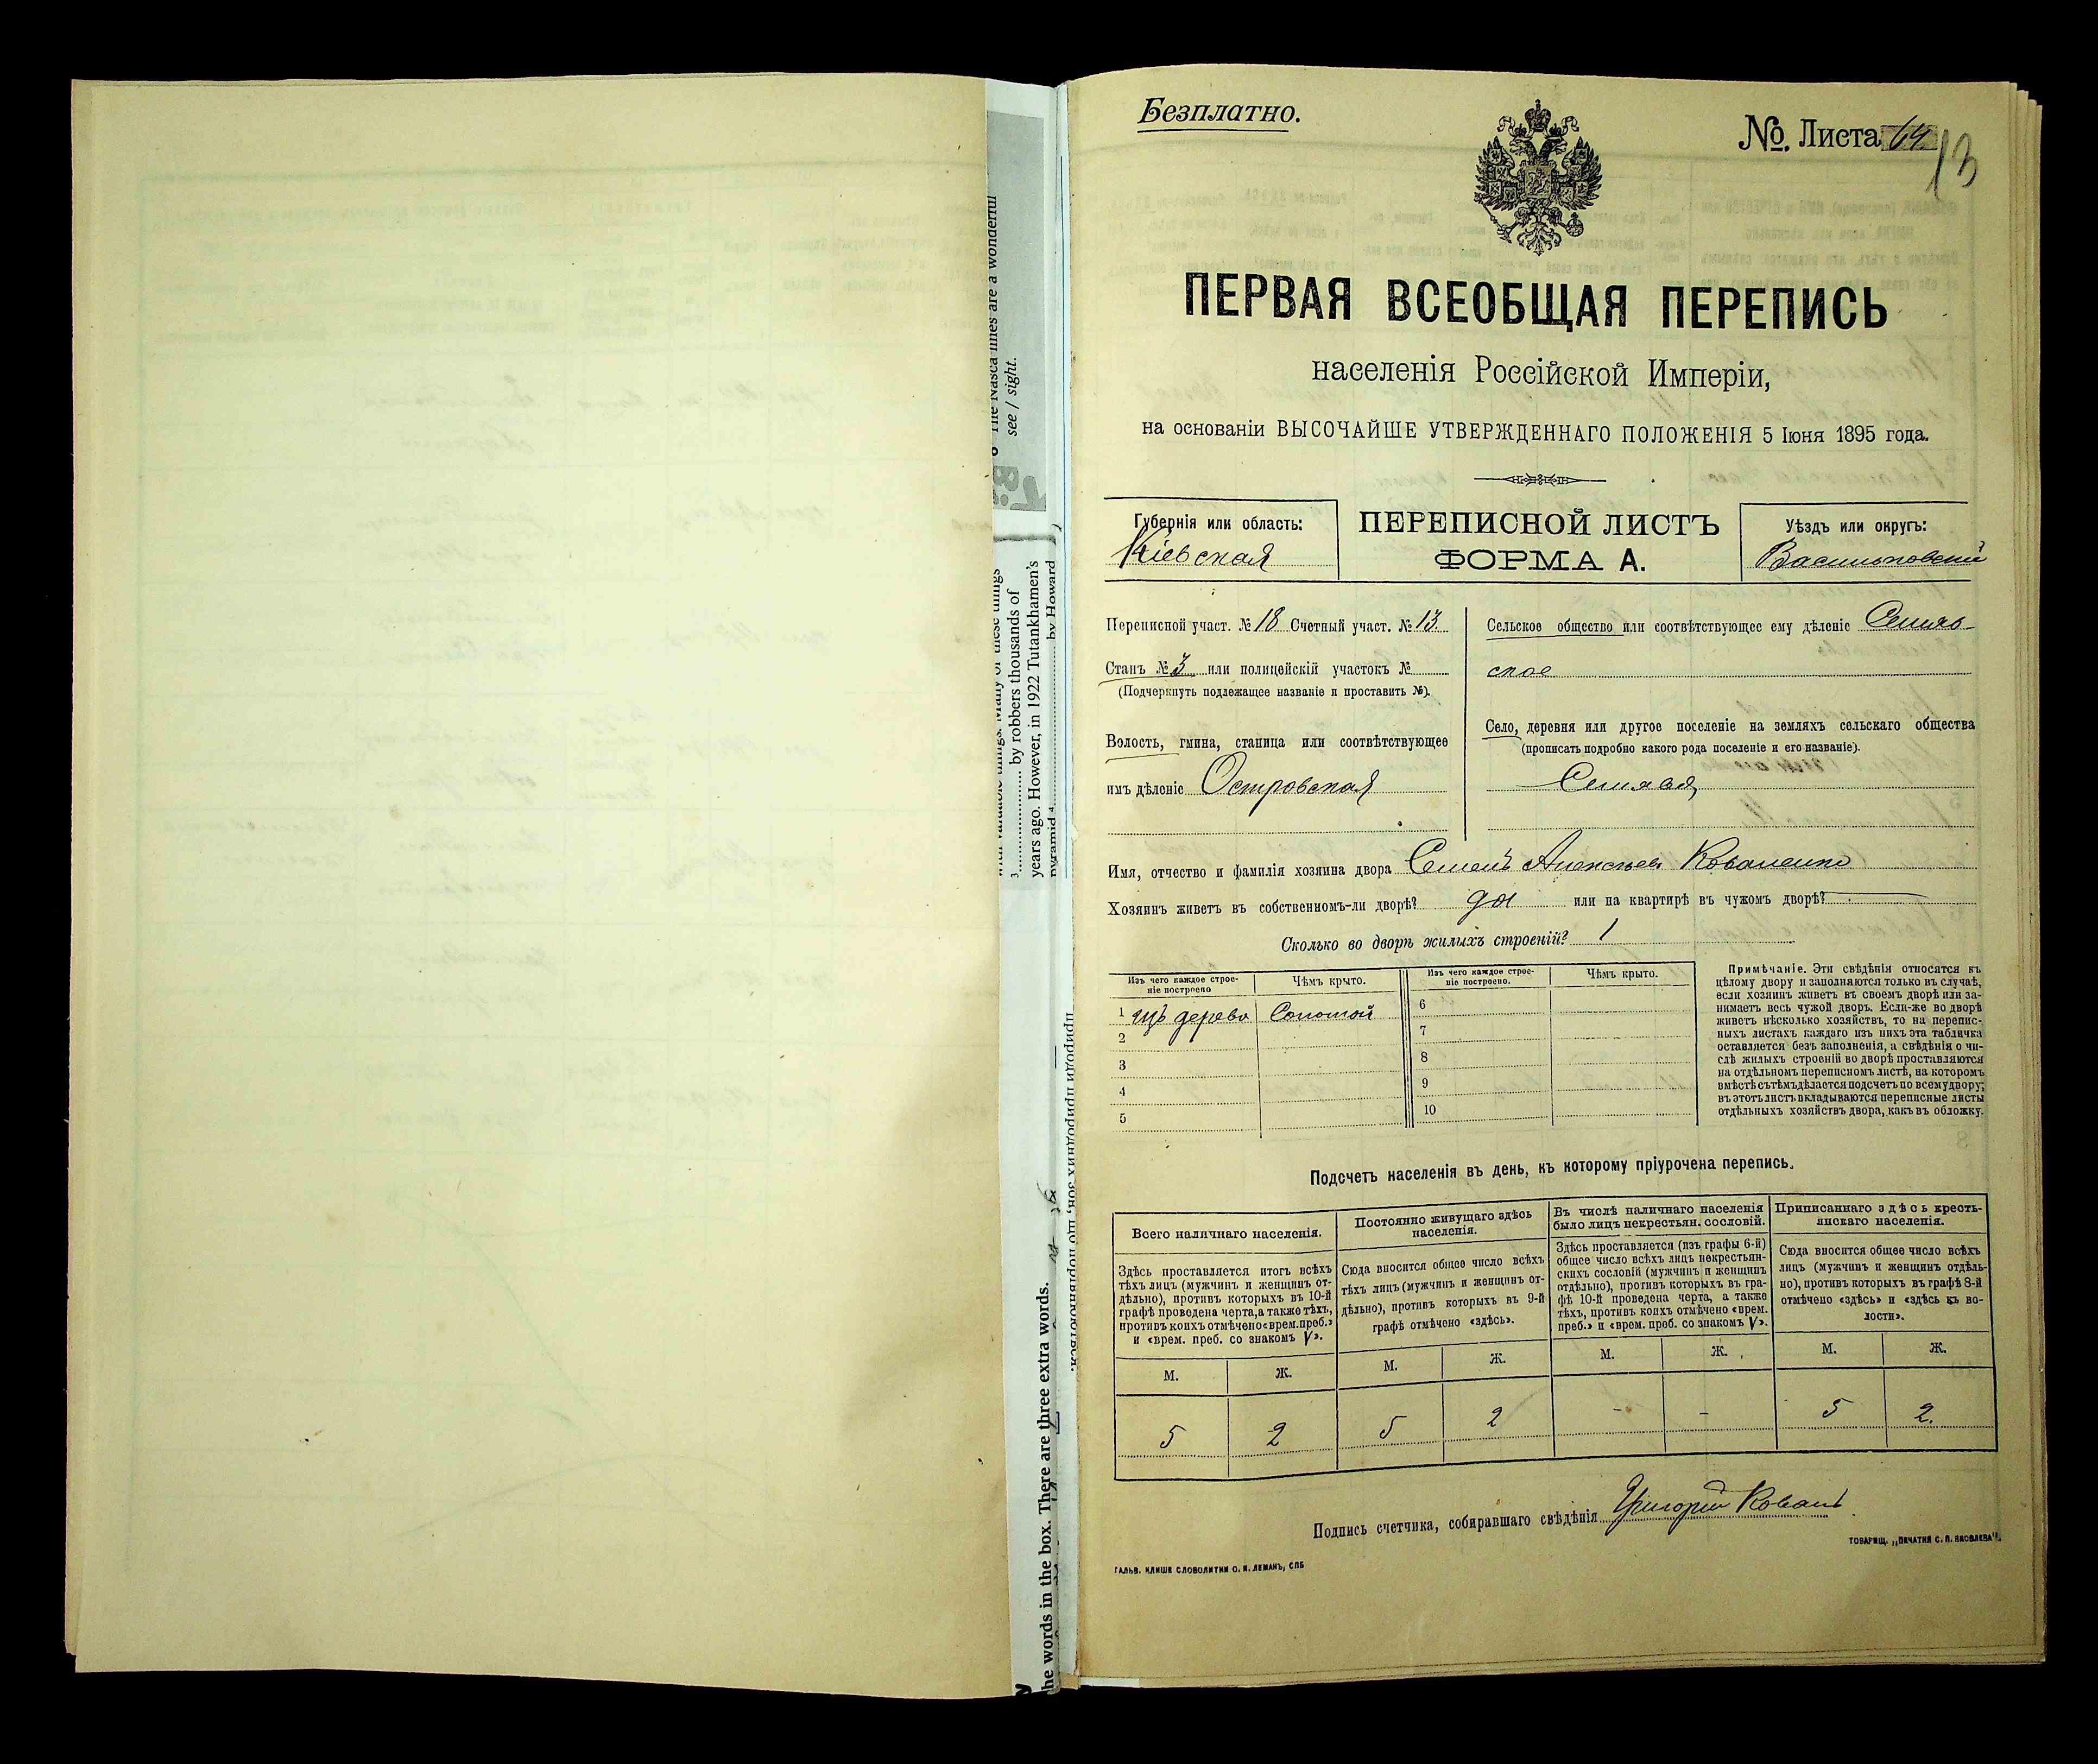 Безплатно.
№ Листа 64
13
ПЕРВАЯ ВСЕОБЩАЯ ПЕРЕПИСЬ
населенія Россійской Имперіи,
на основаніи ВЫСОЧАЙШЕ УТВЕРЖДЕННАГО ПОЛОЖЕНІЯ 5 Іюня 1895 года.
Губернія или область:
Кіевская
ПЕРЕПИСНОЙ ЛИСТЪ
ФОРМА А.
Уѣздъ или округъ:
Васильковскій
Переписной участ. № 18 Счетный участ. № 13
Станъ № 3 или полицейскій участокъ №
(Подчеркнуть подлежащее названіе и проставить №).
Волость, гмина, станица или соотвѣтствующее
имъ дѣленіе Островская
Сельское общество или соотвѣтствующее ему дѣленіе Синяв-
ское
Село, деревня или другое поселеніе на земляхъ сельскаго общества
(прописать подробно какого рода поселеніе и его названіе).
Синява
Имя, отчество и фамилія хозяина двора Семенъ Алексѣевъ Коваленко
Хозяинъ живетъ въ собственномъ-ли дворѣ? да или на квартирѣ въ чужомъ дворѣ?
Сколько во дворѣ жилыхъ строеній? 1
Изъ чего каждое строе-
ніе построено
Чѣмъ крыто.
Изъ чего каждое строе-
ніе построено.
Чѣмъ крыто.
1 изъ дерева Соломой
2
3
4
5
6
7
8
9
10
Примѣчаніе. Эти свѣдѣнія относятся къ
цѣлому двору и заполняются только въ случаѣ,
если хозяинъ живетъ въ своемъ дворѣ или за-
нимаетъ весь чужой дворъ. Если-же во дворѣ
живетъ нѣсколько хозяйствъ, то на перепис-
ныхъ листахъ каждаго изъ нихъ эта табличка
оставляется безъ заполненія, а свѣдѣнія о чи-
слѣ жилыхъ строеній во дворѣ проставляются
на отдѣльномъ переписномъ листѣ, на которомъ
вмѣстѣ съ тѣмъ дѣлается подсчетъ по всему двору;
въ этотъ листъ вкладываются переписные листы
отдѣльныхъ хозяйствъ двора, какъ въ обложку.
Подсчетъ населенія въ день, къ которому пріурочена перепись.
Всего наличнаго населенія.
Здѣсь проставляется итогъ всѣхъ
тѣхъ лицъ (мужчинъ и женщинъ от-
дѣльно), противъ которыхъ въ 10-й
графѣ проведена черта, а также тѣхъ,
противъ коихъ отмѣчено «врем. преб.»
и «врем. преб. со знакомъ V».
Постоянно живущаго здѣсь
населенія.
Сюда вносится общее число всѣхъ
тѣхъ лицъ (мужчинъ и женщинъ от-
дѣльно), противъ которыхъ въ 9-й
графѣ отмѣчено «здѣсь».
Въ числѣ наличнаго населенія
было лицъ некрестьян. сословій.
Здѣсь проставляется (изъ графы 6-й)
общее число всѣхъ лицъ некрестьян-
скихъ сословій (мужчинъ и женщинъ
отдѣльно), противъ которыхъ въ гра-
фѣ 10-й проведена черта, а также
тѣхъ, противъ коихъ отмѣчено «врем.
преб.» и «врем. преб. со знакомъ V».
Приписаннаго здѣсь кресть-
янскаго населенія.
Сюда вносится общее число всѣхъ
лицъ (мужчинъ и женщинъ отдѣль-
но), противъ которыхъ въ графѣ 8-й
отмѣчено «здѣсь» и «здѣсь къ во-
лости».
М. Ж. М. Ж. М. Ж. М. Ж.
5 2 5 2 - - 5 2
Подпись счетчика, собиравшаго свѣдѣнія Григорій Коваль
ТОВАРИЩ. „ПЕЧАТНЯ С. П. ЯКОВЛЕВА".
ГАЛЬВ. КЛИШЕ СЛОВОЛИТНИ О. И. ЛЕМАНЪ, СПБ
The Nasca lines are a wonderful
see / sight.
by robbers thousands of
years ago. However, in 1922 Tutankhamen's
pyramid 4 by Howard
he words in the box. There are three extra words.